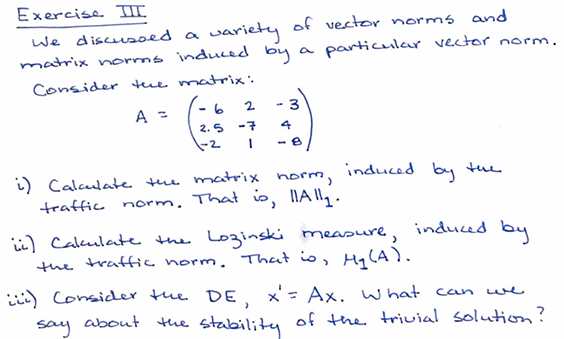 Exercise III
We discussed a variety of vector norms and
matrix norms induced by a particular vector norm.
Consider the matrix:
A = ( -6 2 -3
2.5 -7 4
-2 1 -8 )
i) Calculate the matrix norm, induced by the
traffic norm. That is, ||A||₁.
ii) Calculate the Lozinski measure, induced by
the traffic norm. That is, μ₁(A).
iii) Consider the DE, x' = Ax. What can we
say about the stability of the trivial solution?